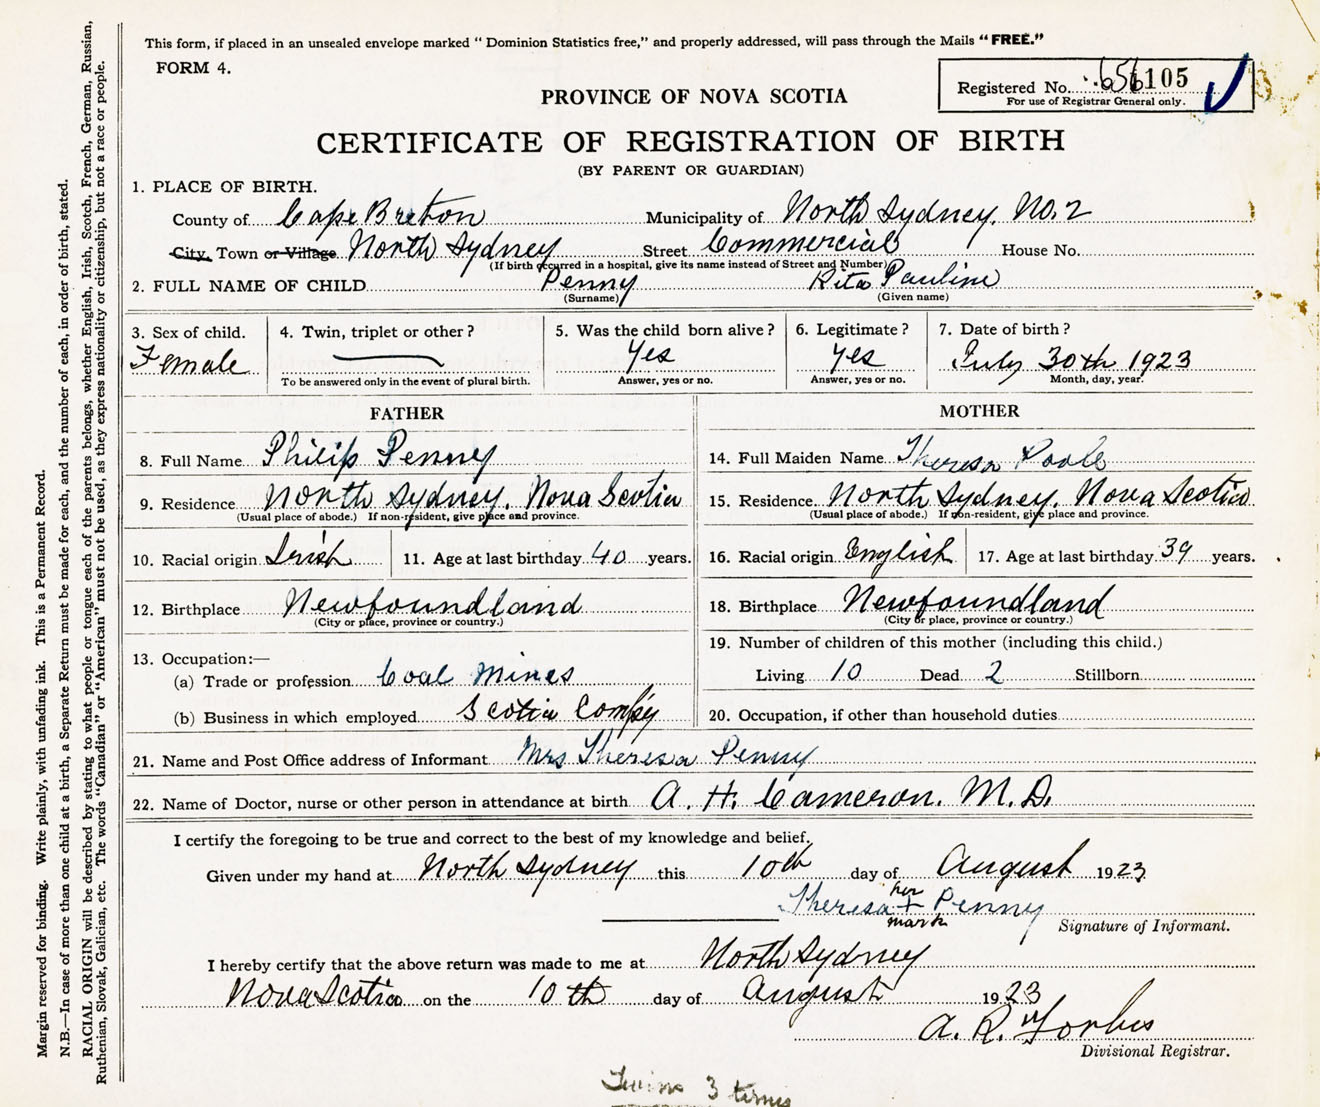 This form, if placed in an unsealed envelope marked " Dominion Statistics free," and properly addressed, will pass through the Mails " FREE."
FORM 4.
Registered No. 105
For use of Registrar General only.
PROVINCE OF NOVA SCOTIA
CERTIFICATE OF REGISTRATION OF BIRTH
(BY PARENT OR GUARDIAN)
1. PLACE OF BIRTH.
County of Cape Breton Municipality of North Sydney, No. 2
City, Town or Village North Sydney Street Commercial House No.
(If birth occurred in a hospital, give its name instead of Street and Number)
2. FULL NAME OF CHILD Penny Rita Pauline
(Surname) (Given name)
3. Sex of child. 4. Twin, triplet or other ? 5. Was the child born alive ? 6. Legitimate ? 7. Date of birth ?
Female Yes Yes July 30th 1923
To be answered only in the event of plural birth. Answer, yes or no. Answer, yes or no. Month, day, year.
FATHER MOTHER
8. Full Name Philip Penny 14. Full Maiden Name Theresa Poole
9. Residence North Sydney, Nova Scotia 15. Residence North Sydney, Nova Scotia
(Usual place of abode.) If non-resident, give place and province. (Usual place of abode.) If non-resident, give place and province.
10. Racial origin Irish 11. Age at last birthday 40 years. 16. Racial origin English 17. Age at last birthday 39 years.
12. Birthplace Newfoundland 18. Birthplace Newfoundland
(City or place, province or country.) (City or place, province or country.)
13. Occupation:— 19. Number of children of this mother (including this child.)
(a) Trade or profession Coal Mines Living 10 Dead 2 Stillborn
(b) Business in which employed Scotia Comp'y 20. Occupation, if other than household duties
21. Name and Post Office address of Informant Mrs Theresa Penny
22. Name of Doctor, nurse or other person in attendance at birth A. H. Cameron. M. D.
I certify the foregoing to be true and correct to the best of my knowledge and belief.
Given under my hand at North Sydney this 10th day of August 1923
her
Theresa + Penny
mark
Signature of Informant.
I hereby certify that the above return was made to me at North Sydney
Nova Scotia on the 10th day of August 1923
A. R. Forbes
Divisional Registrar.
Twins 3 times
Margin reserved for binding. Write plainly, with unfading ink. This is a Permanent Record.
N.B.—In case of more than one child at a birth, a Separate Return must be made for each, and the number of each, in order of birth, stated.
RACIAL ORIGIN will be described by stating to what people or tongue each of the parents belongs, whether English, Irish, Scotch, French, German, Russian,
Ruthenian, Slovak, Galician, etc. The words "Canadian" or "American" must not be used, as they express nationality or citizenship, but not a race or people.